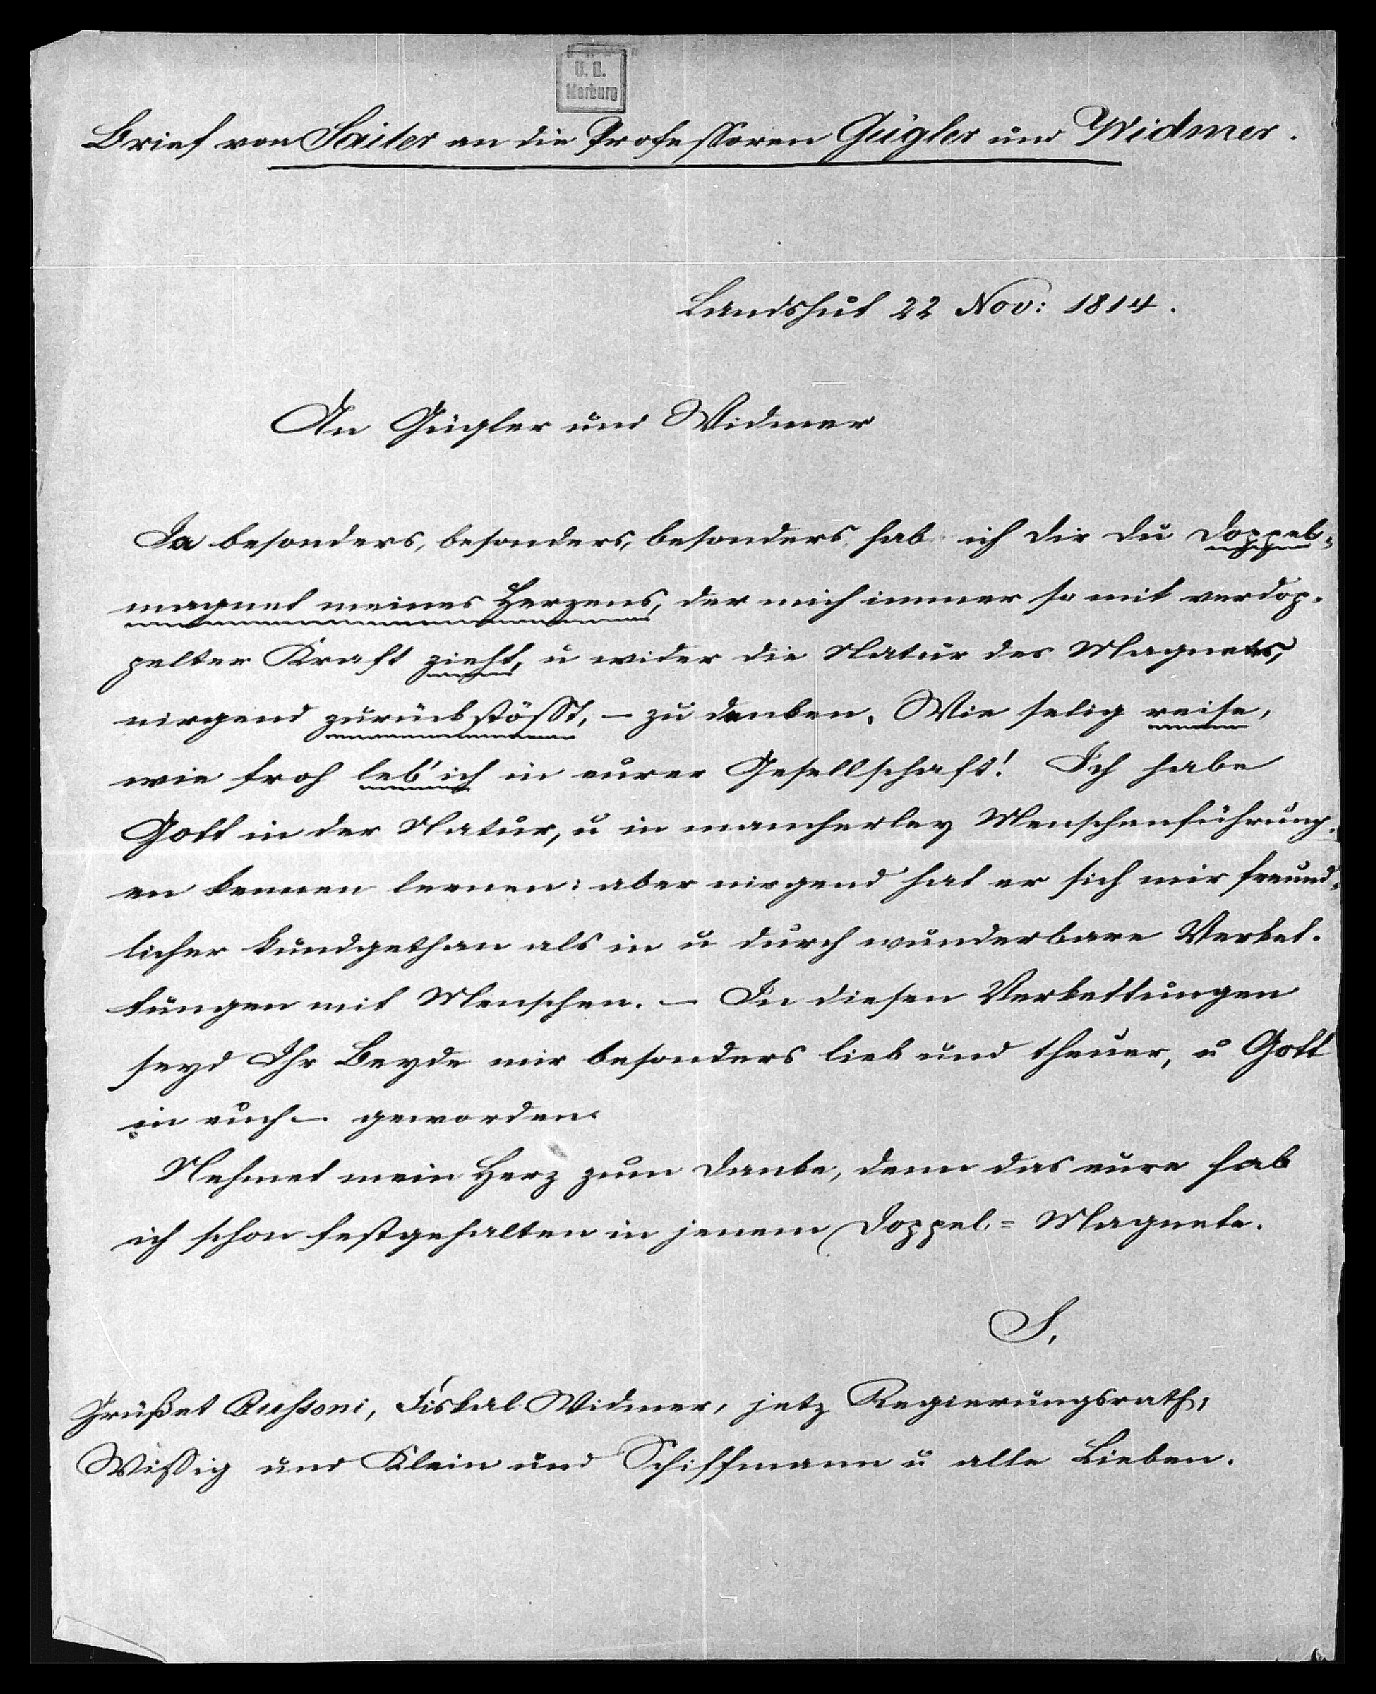 U. B.
Marburg
Brief von Sailer an die Professoren Gügler und Widmer.
Landshut 22 Nov: 1814.
An Gügler und Widmer
Ja besonders, besonders, besonders hab ich dir du Doppel=
magnet meines Herzens, der mich immer so mit verdop-
pelter Kraft zieht, u wider die Natur des Magnets,
nirgend zurückstößt, – zu danken. Wie selig reise,
wie froh leb' ich in eurer Gesellschaft! Ich habe
Gott in der Natur, u in mancherley Menschenführung-
en kennen lernen: aber nirgend hat er sich mir freund-
licher kundgethan als in u durch wunderbare Verket-
tungen mit Menschen. – In diesen Verkettungen
seyd Ihr Beyde mir besonders lieb und theuer, u Gott
in euch – geworden.
Nehmet mein Herz zum Danke, denn das eure hab
ich schon festgehalten in jenem Doppel=Magnete.
S.
Grüßet Businger, Fiskal Widmer, jetz Regierungsrath,
Wissig und Klein und Schiffmann u alle Lieben.